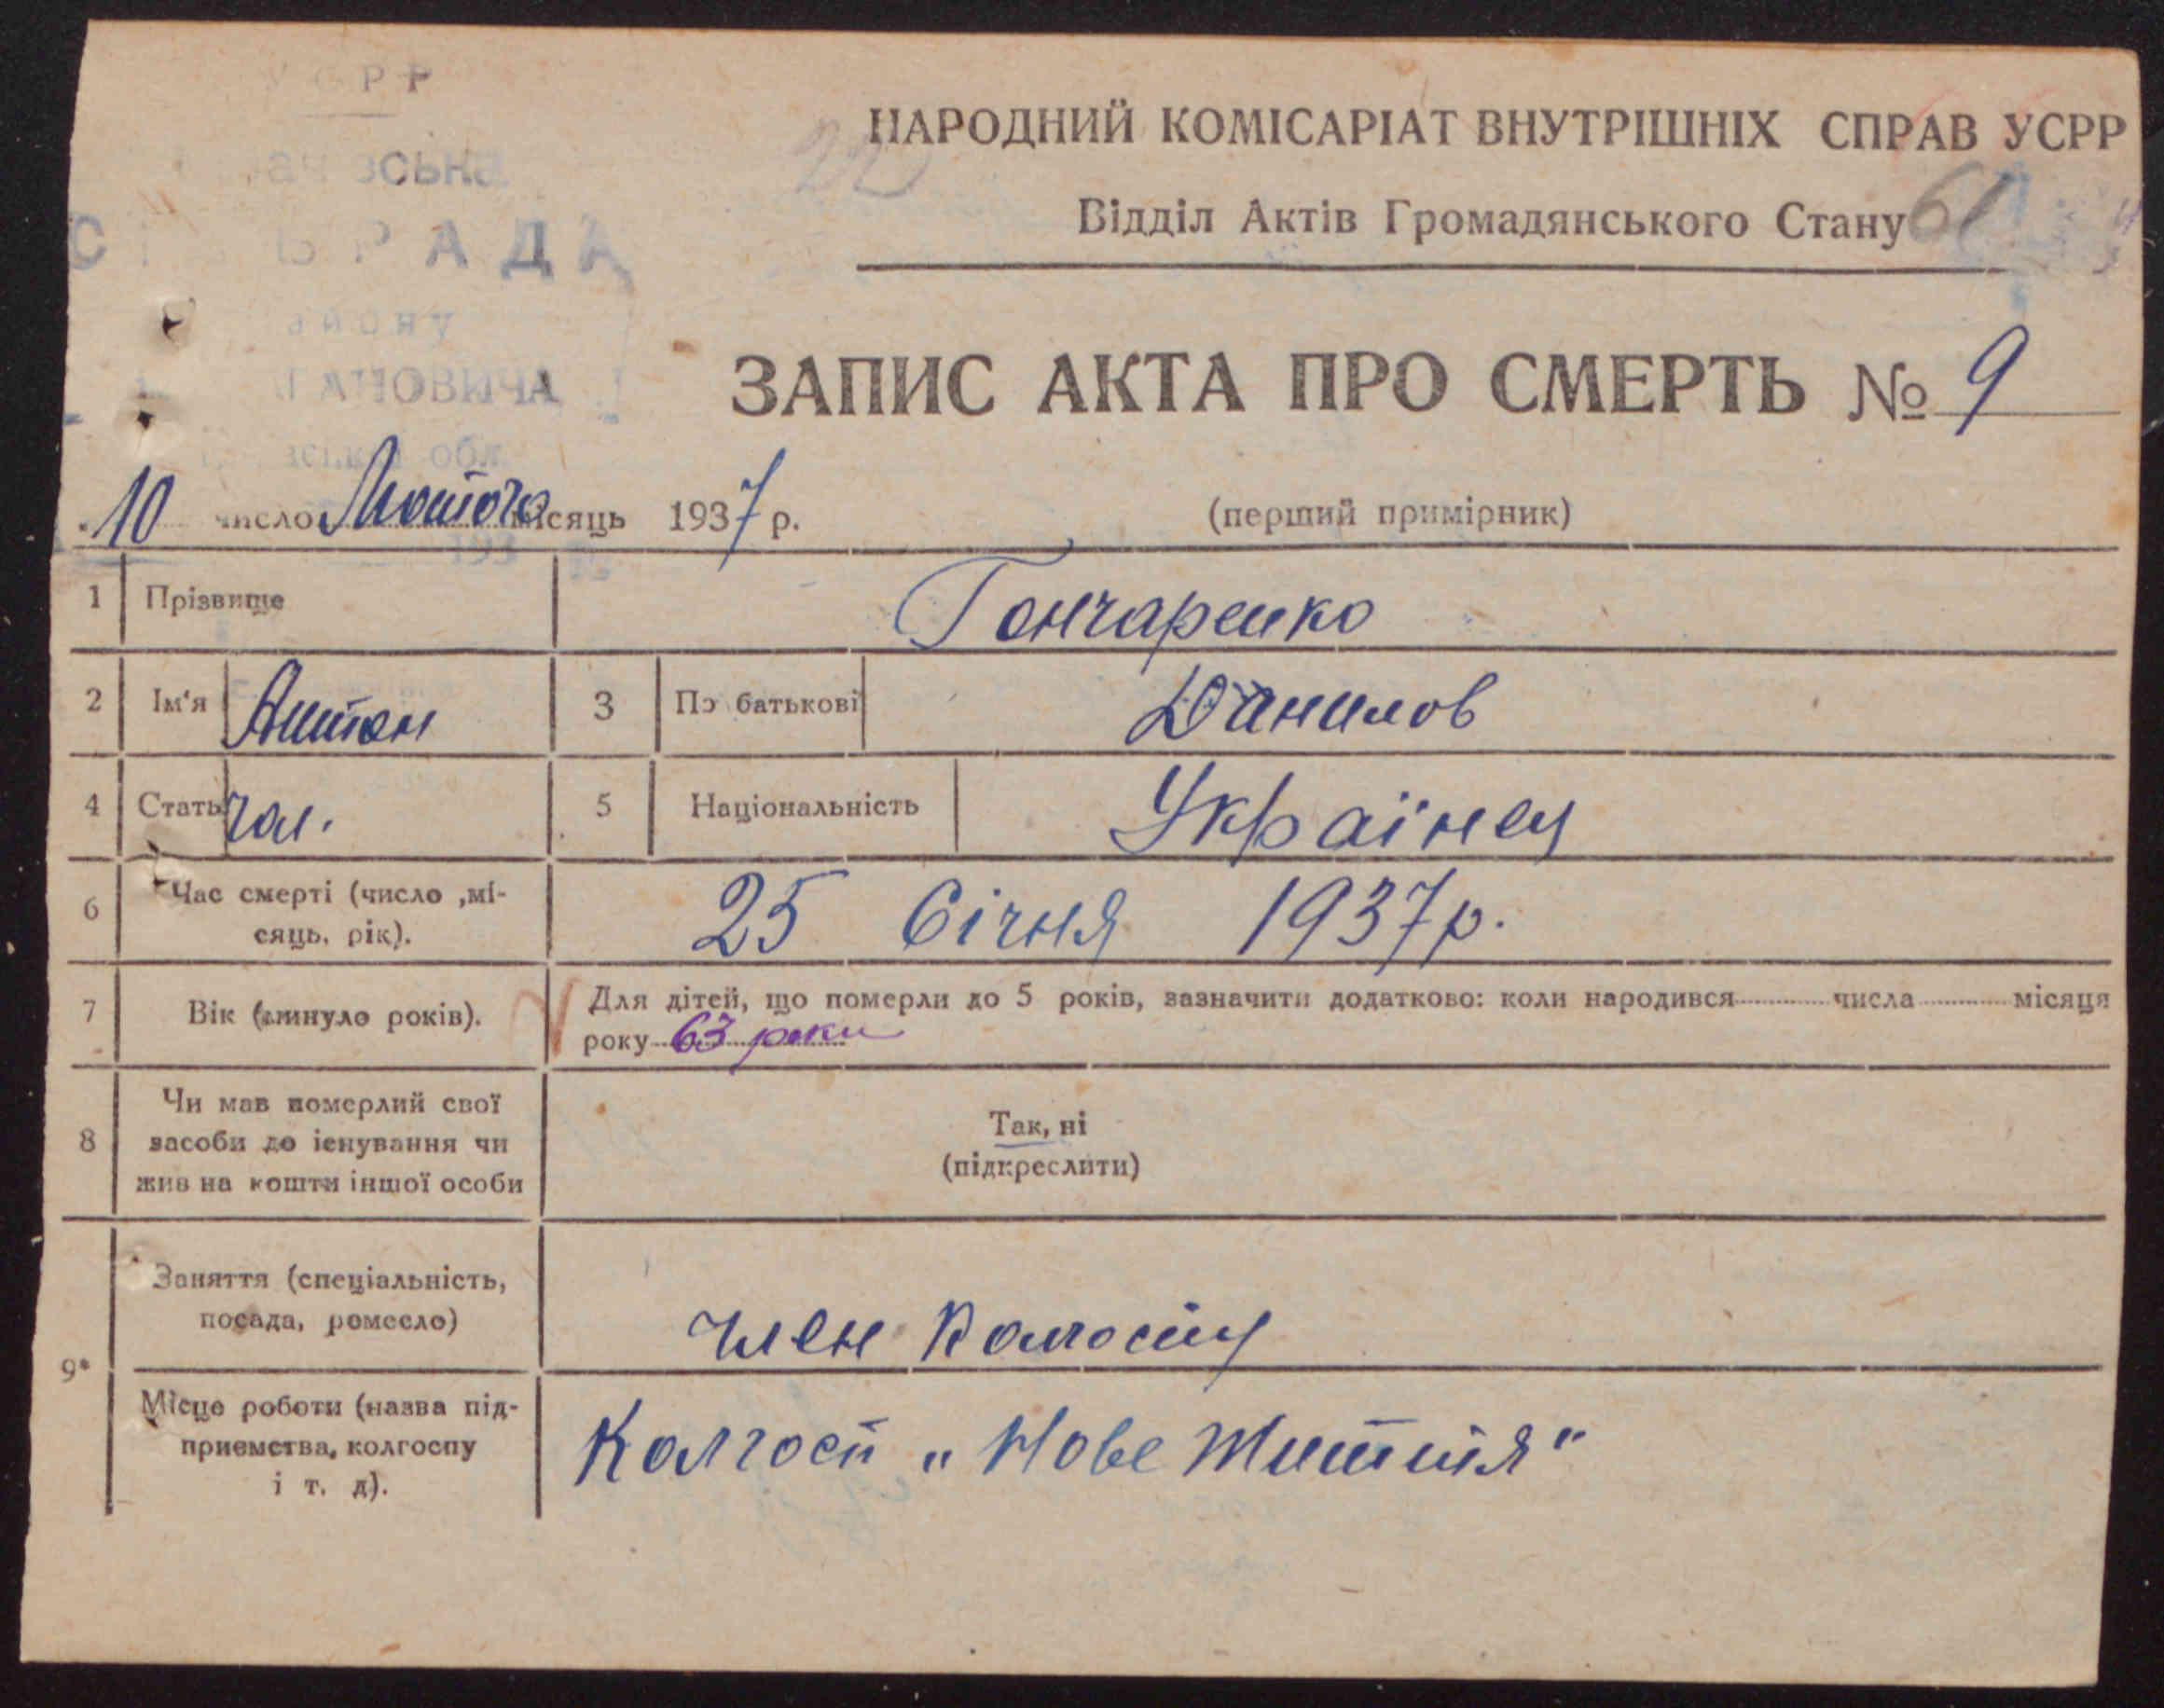 УСРР
СІЛЬРАДА
району
КАГАНОВИЧА
обл.
193
22
НАРОДНИЙ КОМІСАРІАТ ВНУТРІШНІХ СПРАВ УСРР
Відділ Актів Громадянського Стану
61
ЗАПИС АКТА ПРО СМЕРТЬ № 9
10 число Лютого місяць 1937 р.
(перший примірник)
1 Прізвище Гончаренко
2 Ім'я Антон 3 По батькові Данилов
4 Стать чол. 5 Національність Українец
6 Час смерті (число ,мі-
сяць, рік). 25 Січня 1937 р.
7 Вік (минуло років). Для дітей, що померли до 5 років, зазначити додатково: коли народився числа місяця
року 63 роки
8 Чи мав померлий свої
засоби до існування чи
жив на кошти іншої особи
Так, ні
(підкреслити)
9* Заняття (спеціальність,
посада, ромесло)
Член Колгоспу
Місце роботи (назва під-
приємства, колгоспу
і т. д).
Колгосп „Нове Життя"